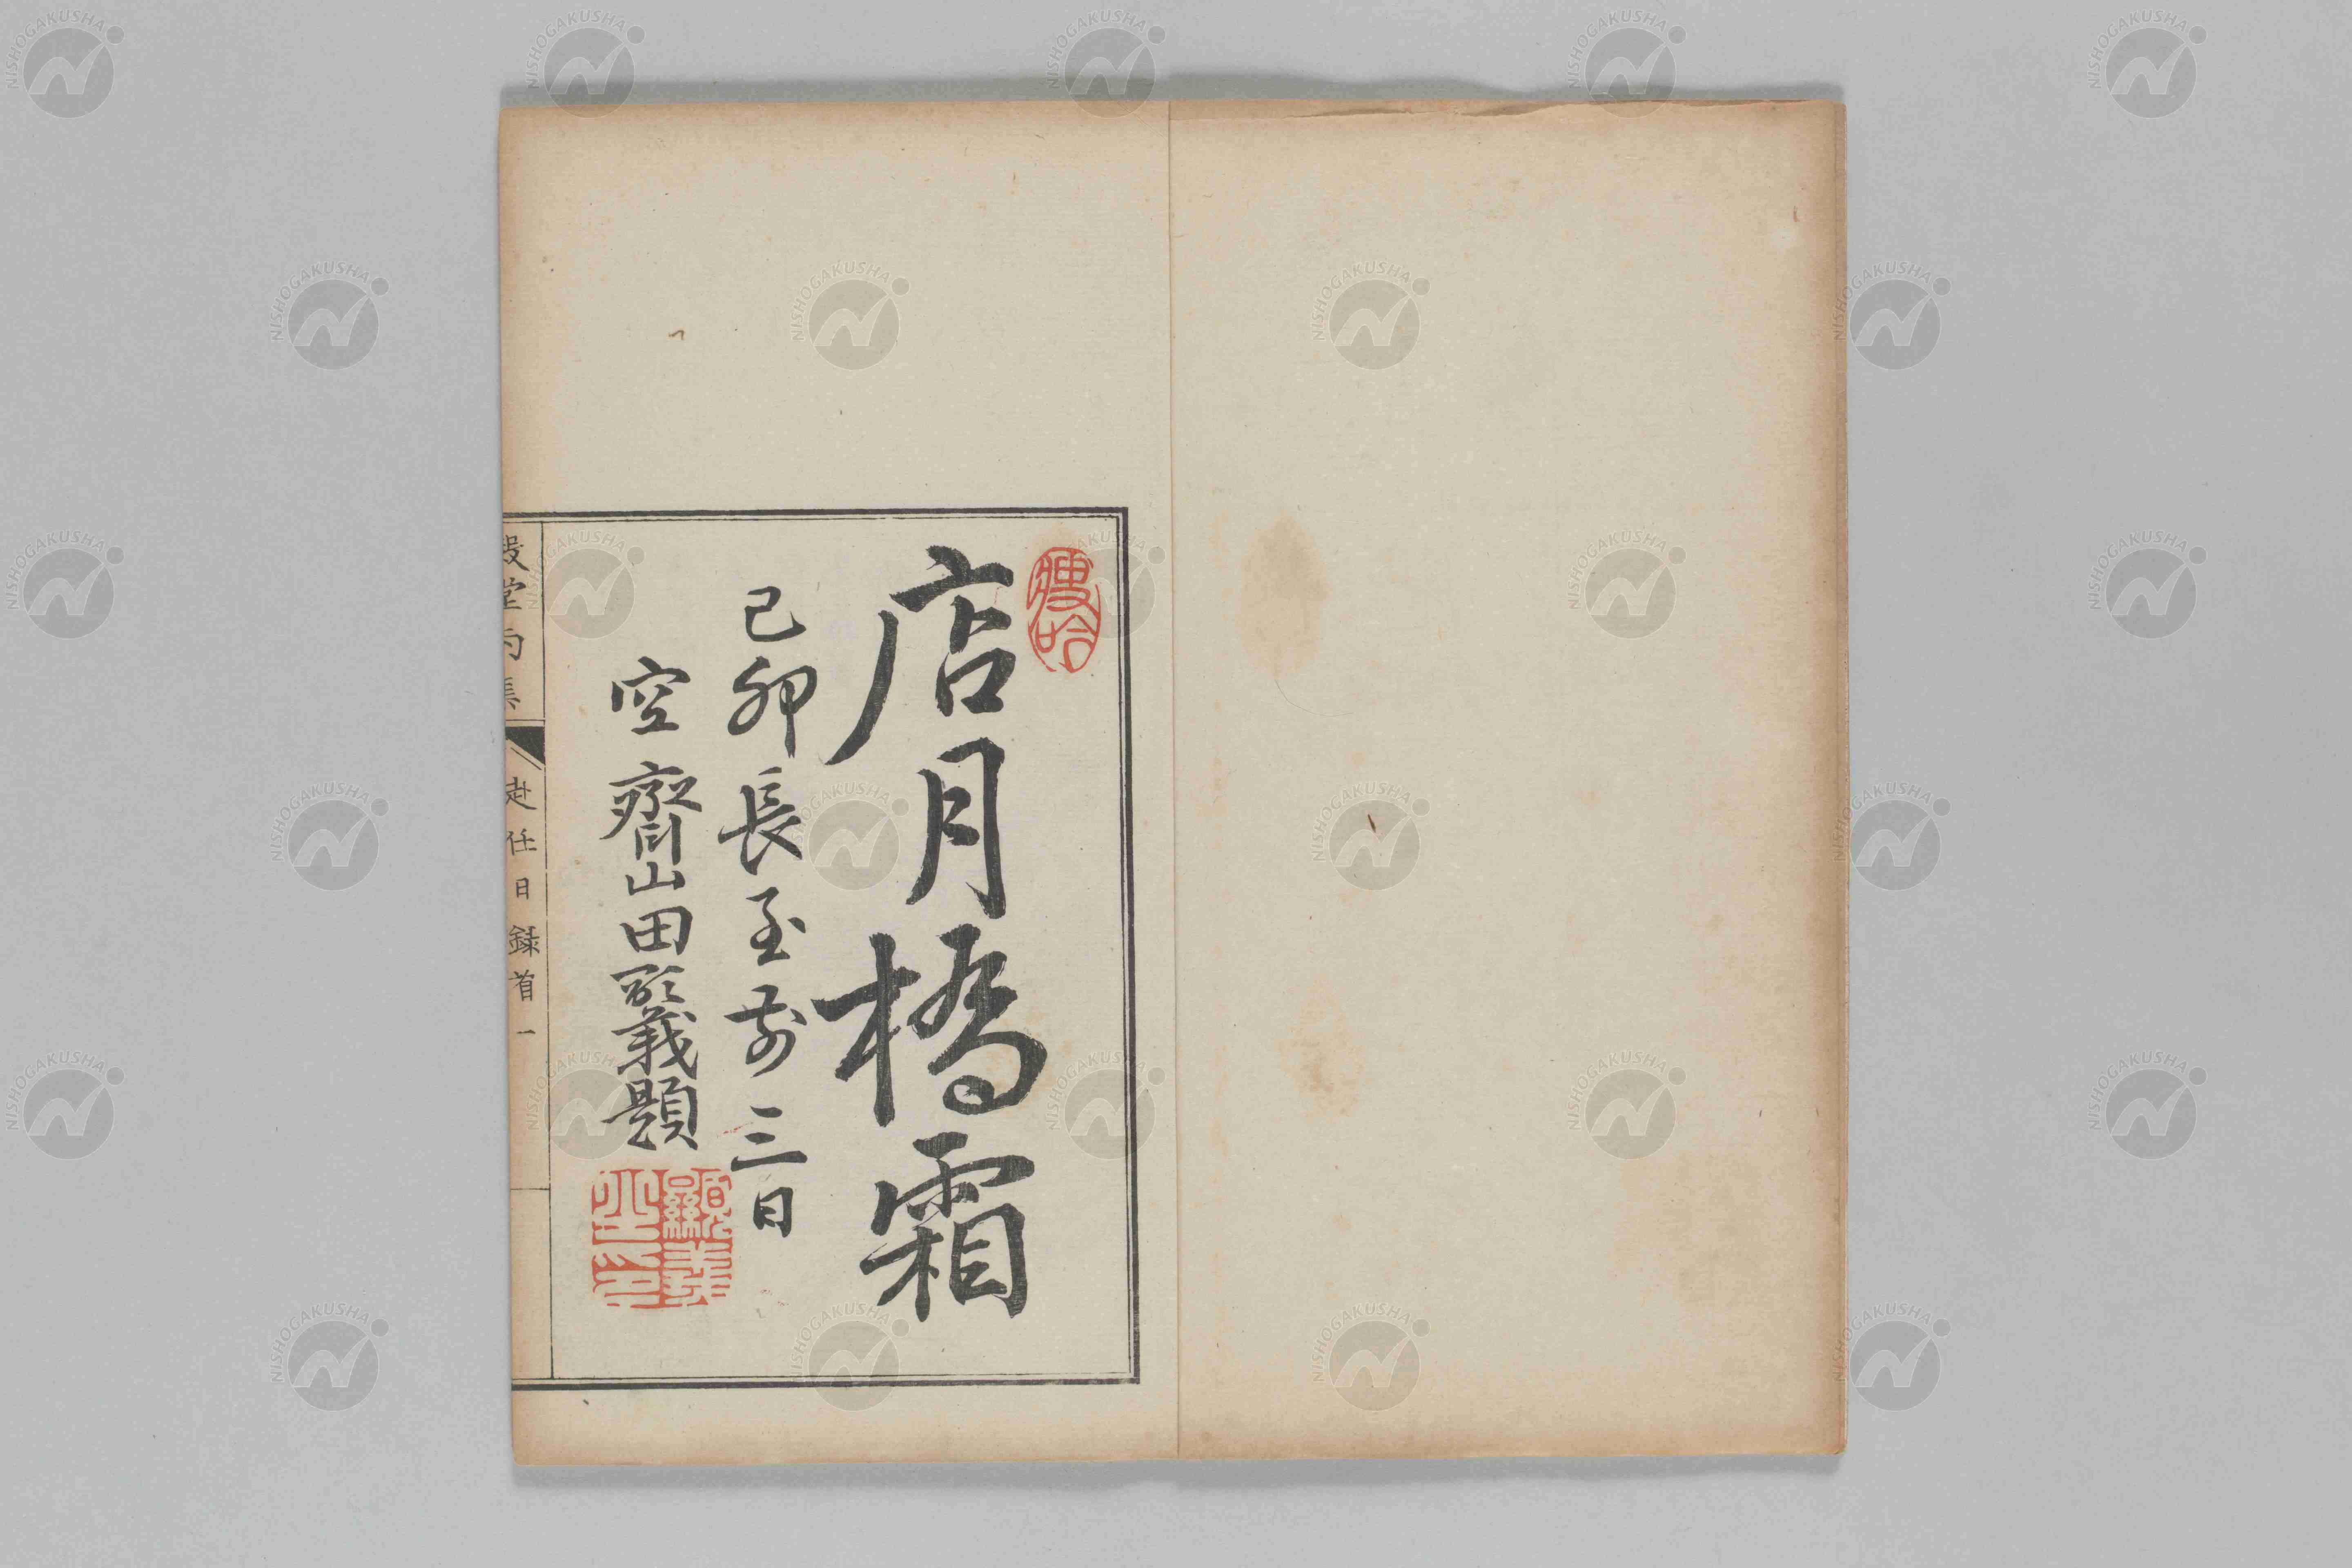 店月橋霜
己卯長至前三日
空齋山田顕義題
堂
赴任日録首一
NISHOGAKUSHA